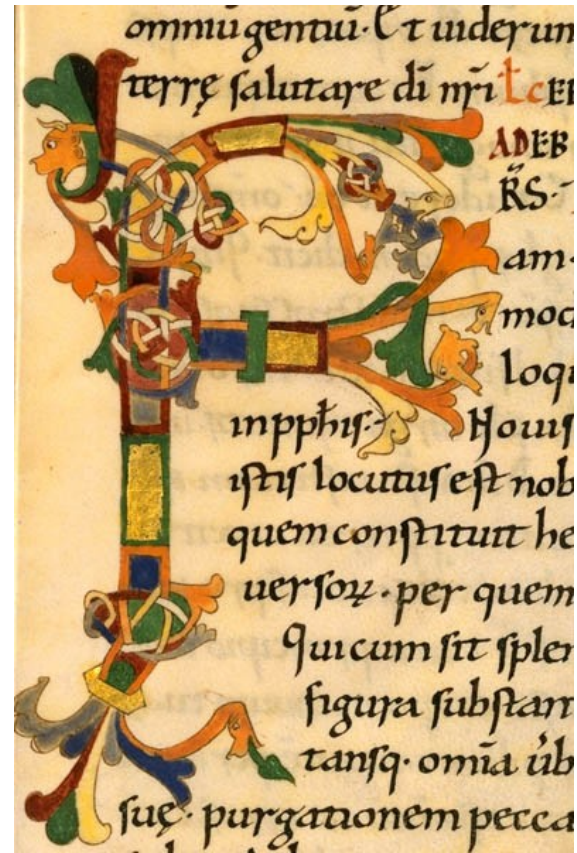 omniu gentiū. Et uiderun
terrę salutare dī nr̄i Łc EP
AD EB
R̄S:
am.
moc
loqu
in pphis. Nouis
istis locutus est nob
quem constituit he
uersoꝝ. per quem
Qui cum sit splen
figura substan
tansq. om̄ia ūb
suę. purgationem pecca